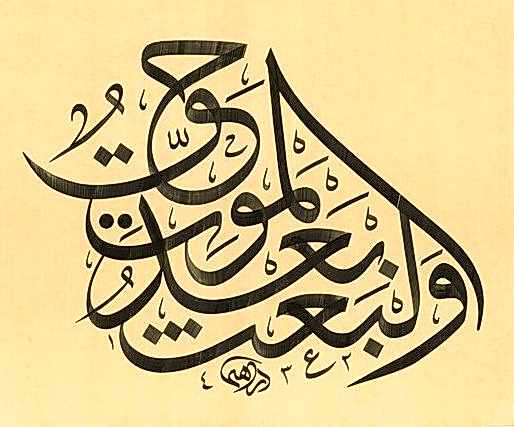 والبعث بعد الموت حق